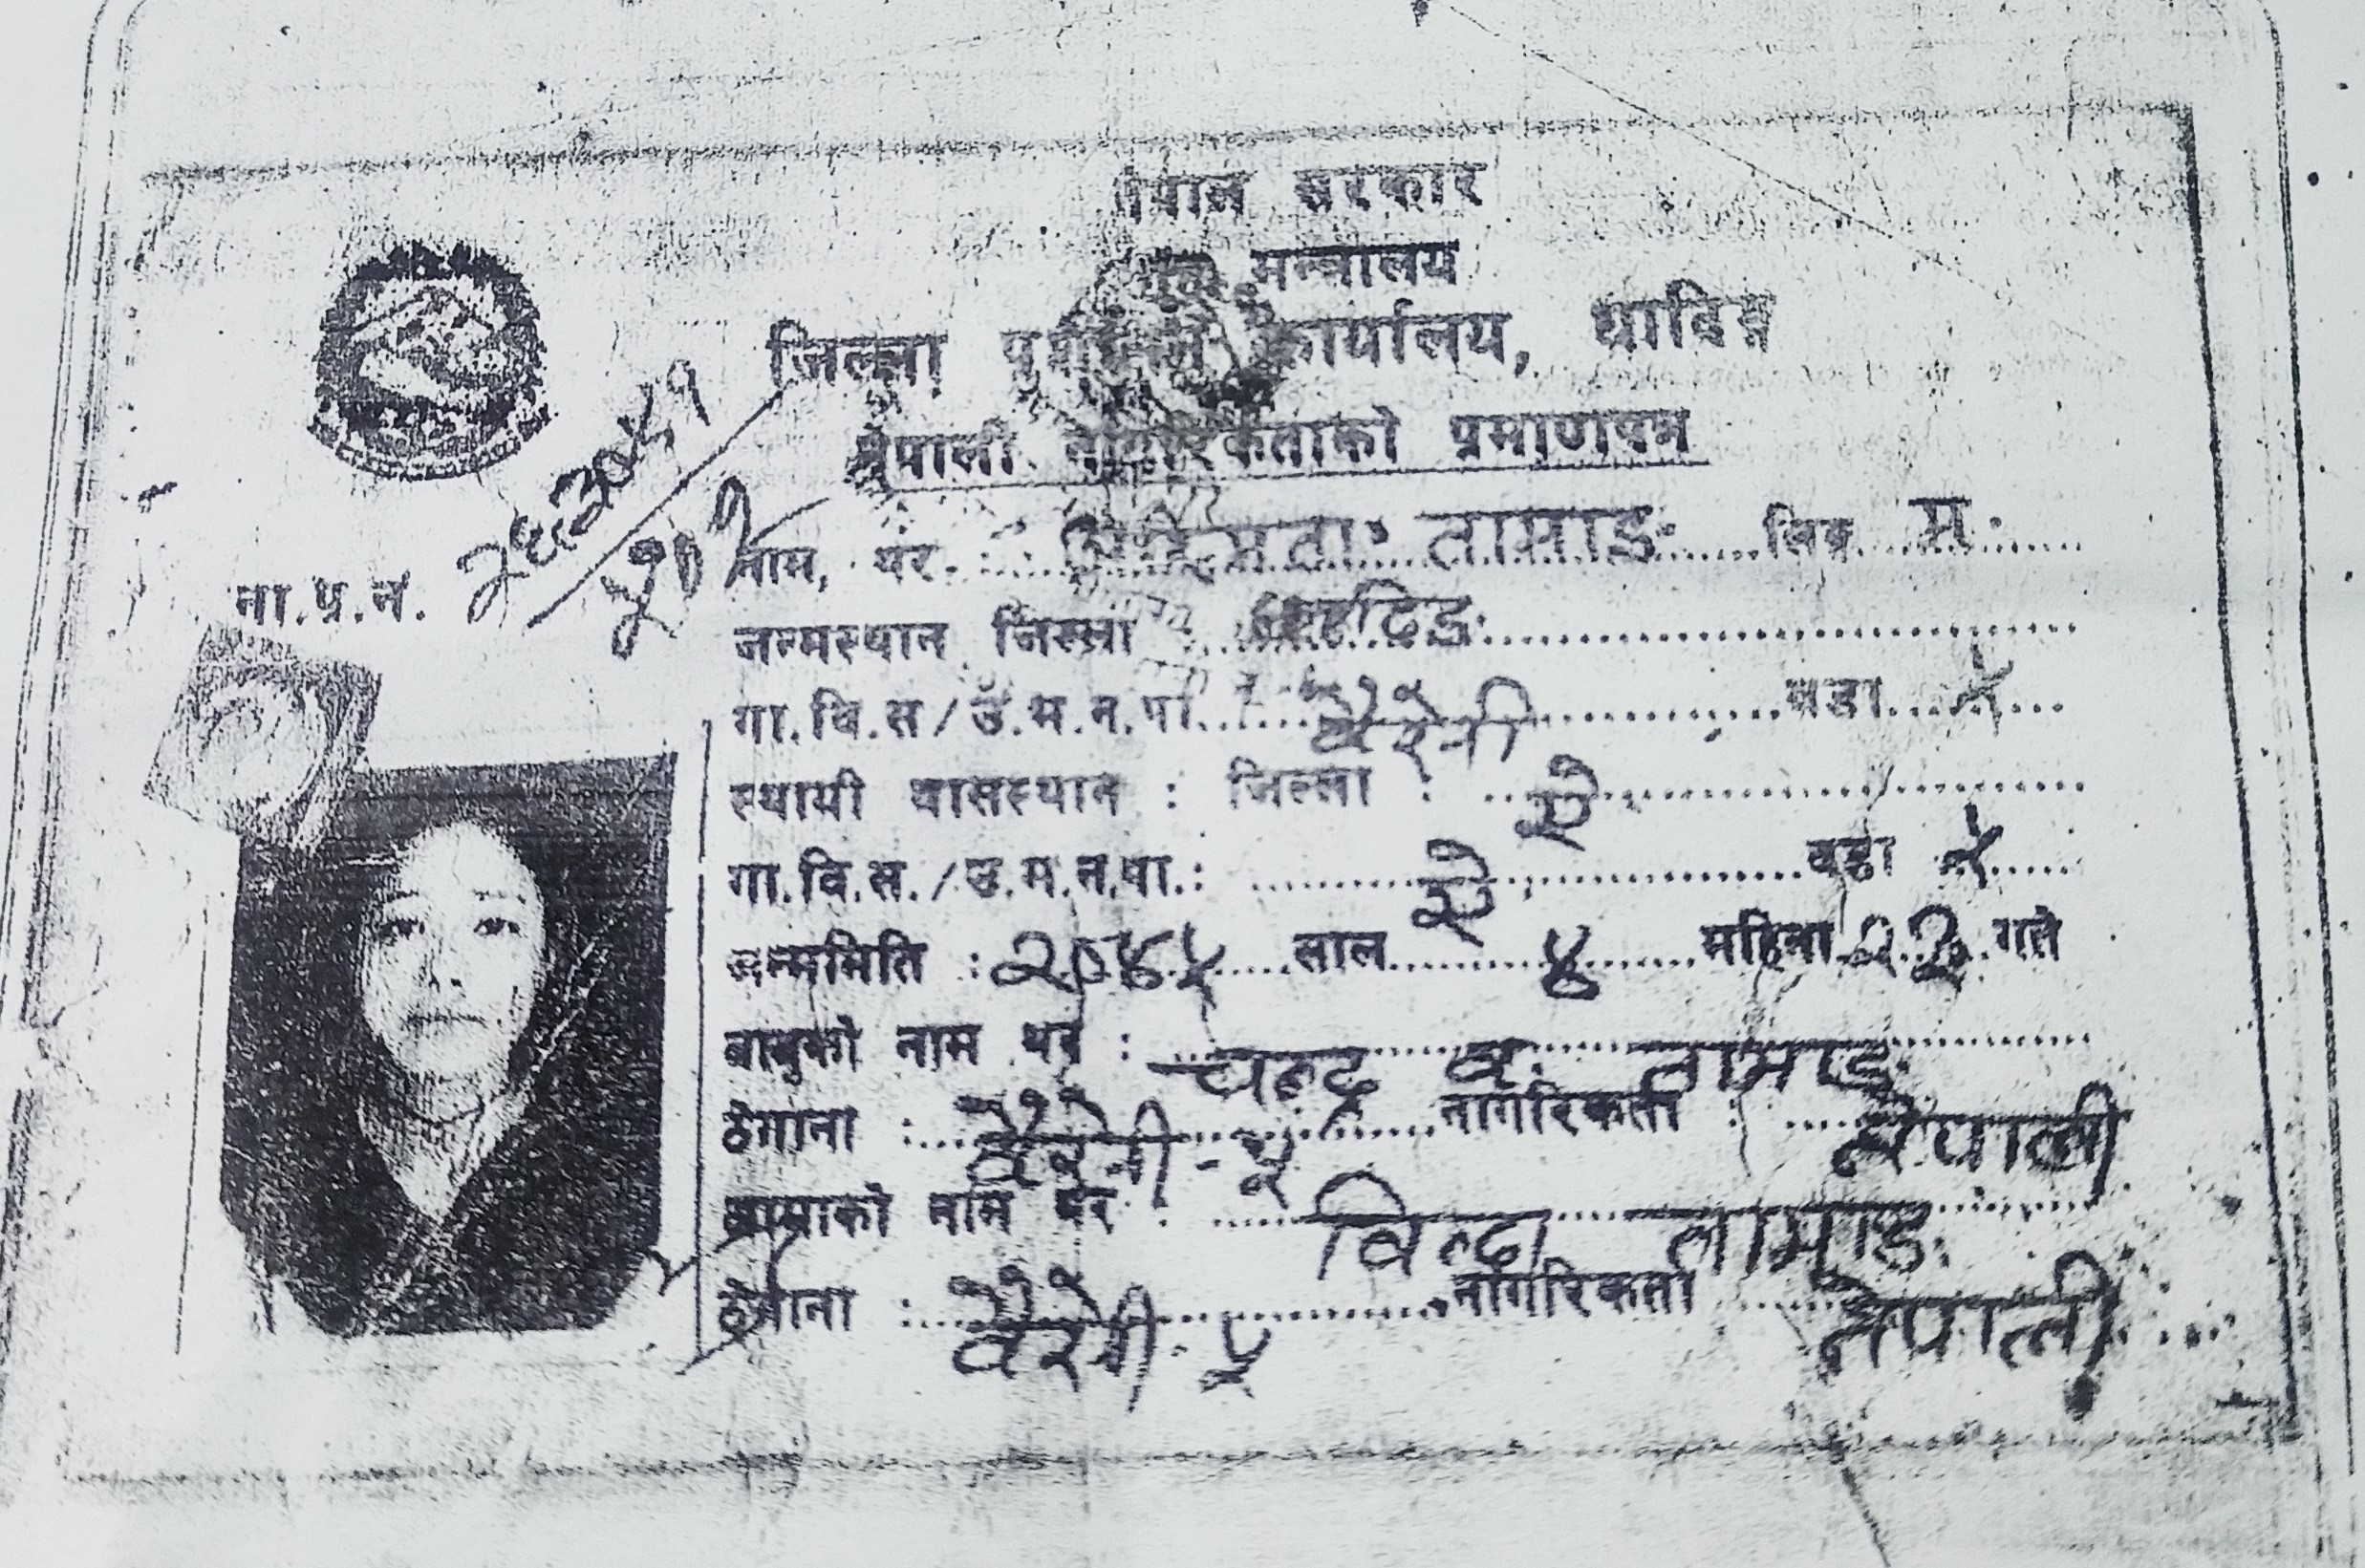 नेपाल सरकार
गृह मन्त्रालय
जिल्ला प्रशासन कार्यालय, धादिङ्ग
नेपाली नागरिकताको प्रमाणपत्र
ना.प्र.नं.
नाम, थर : तामाङ लिङ्ग म.
जन्मस्थान जिल्ला : धादिङ
गा.वि.स/उ.म.न.पा. : बैरेनी वडा ५
स्थायी वासस्थान : जिल्ला : ऐ
गा.वि.स./उ.म.न.पा.: ऐ वडा ५
जन्ममिति : २०४५ साल ४ महिना २२ गते
बाबुको नाम थर : चन्द्र ब. तामाङ
ठेगाना : बैरेनी - ५ नागरिकता : नेपाली
आमाको नाम थर : विन्दा तामाङ
ठेगाना : बैरेनी - ५ नागरिकता नेपाली